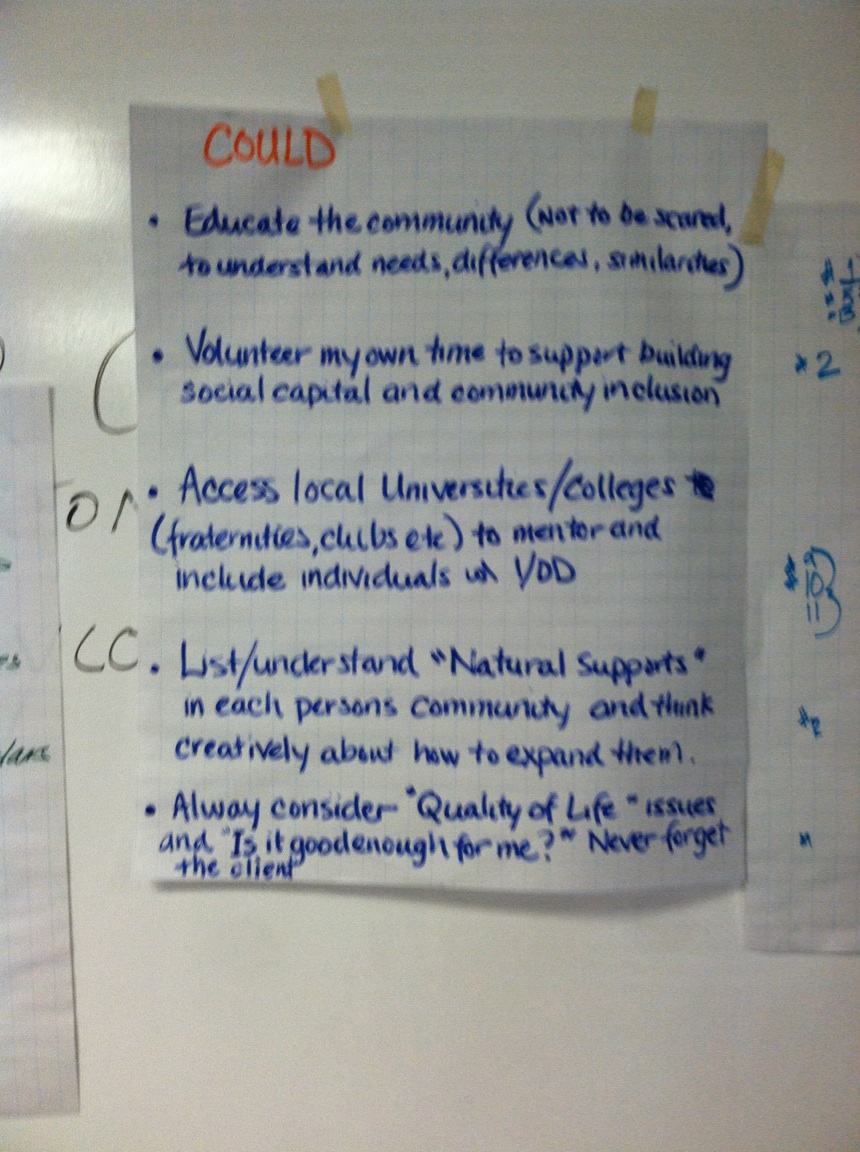 COULD
• Educate the community (Not to be scared,
to understand needs, differences, similarities)
• Volunteer my own time to support building
social capital and community inclusion
• Access local Universities/Colleges
(fraternities, clubs etc) to mentor and
include individuals w/ I/DD
• List/understand "Natural Supports"
in each persons community and think
creatively about how to expand them.
• Alway consider "Quality of Life" issues
and "Is it good enough for me?" Never forget
the client
CC
2
10
11